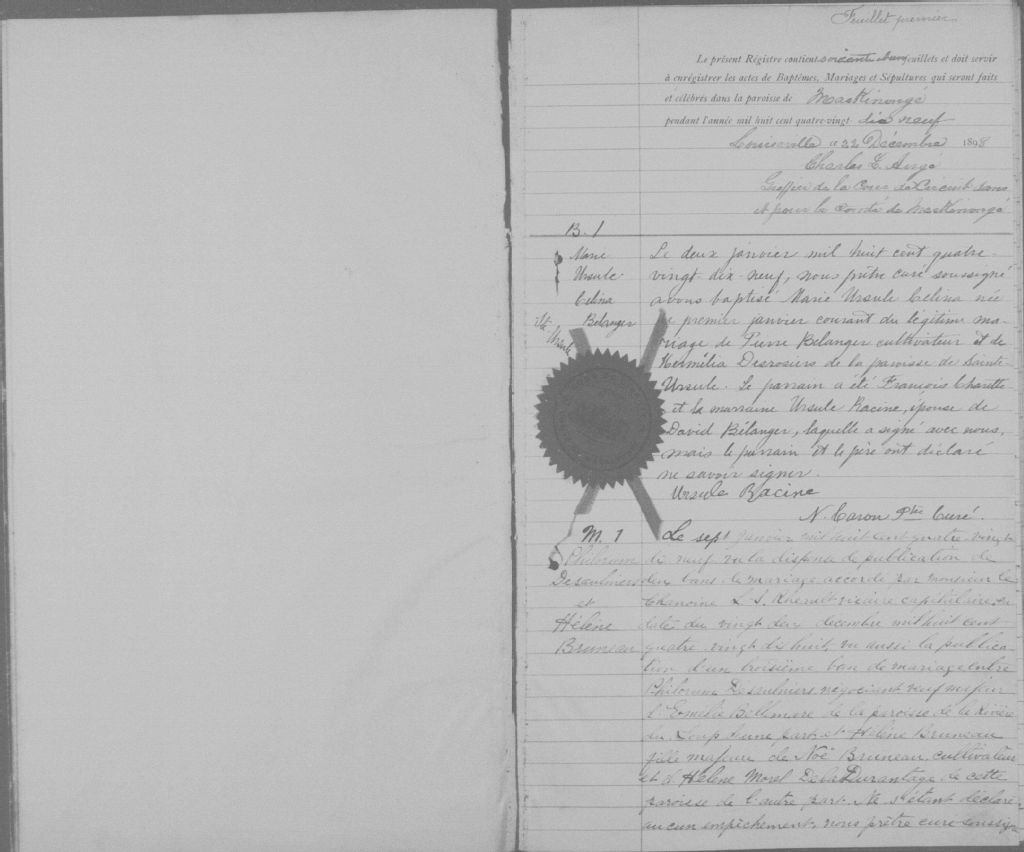 Feuillet premier
Le présent Régistre contient soixante feuillets et doit servir
à enrégistrer les actes de Baptêmes, Mariages et Sépultures qui seront faits
et célébrés dans la paroisse de Maskinongé
pendant l'année mil huit cent quatre-vingt dix neuf
Louiseville 22 Décembre 1898
Charles L. Augé
Greffier de la Cour de Circuit dans
et pour le Comté de Maskinongé
B. 1
Marie
Ursule
Celina
Belanger
Ste Ursule
Le deux janvier mil huit cent quatre-
vingt dix-neuf, nous prêtre curé soussigné
avons baptisé Marie Ursule Celina née
le premier janvier courant du légitime ma-
riage de Pierre Belanger cultivateur et de
Hermélia Desrosiers de la paroisse de Sainte
Ursule. Le parrain a été François Charette
et la marraine Ursule Racine, épouse de
David Bélanger, laquelle a signé avec nous,
mais le parrain et le père ont déclaré
ne savoir signer.
Ursule Racine
N. Caron Ptre Curé.
M. 1
Philorum
Desaulniers
et
Hélène
Bruneau
Le sept janvier mil huit cent quatre-vingt
dix neuf vu la dispense de publication de
deux bans de mariage accordé par monsieur le
Chanoine L. S. Rheault vicaire capitulaire en
date du vingt deux decembre mil huit cent
quatre vingt dix huit, vu aussi la publica-
tion d'un troisième ban de mariage entre
Philorum Desaulniers négociant veuf majeur
d'Emélie Bellemare de la paroisse de la Rivière
du Loup d'une part et Hélène Bruneau
fille majeure de Noé Bruneau, cultivateur
et d'Hélène Morel De la Durantage de cette
paroisse de l'autre part. Ne s'étant déclaré
aucun empêchement, nous prêtre curé soussig